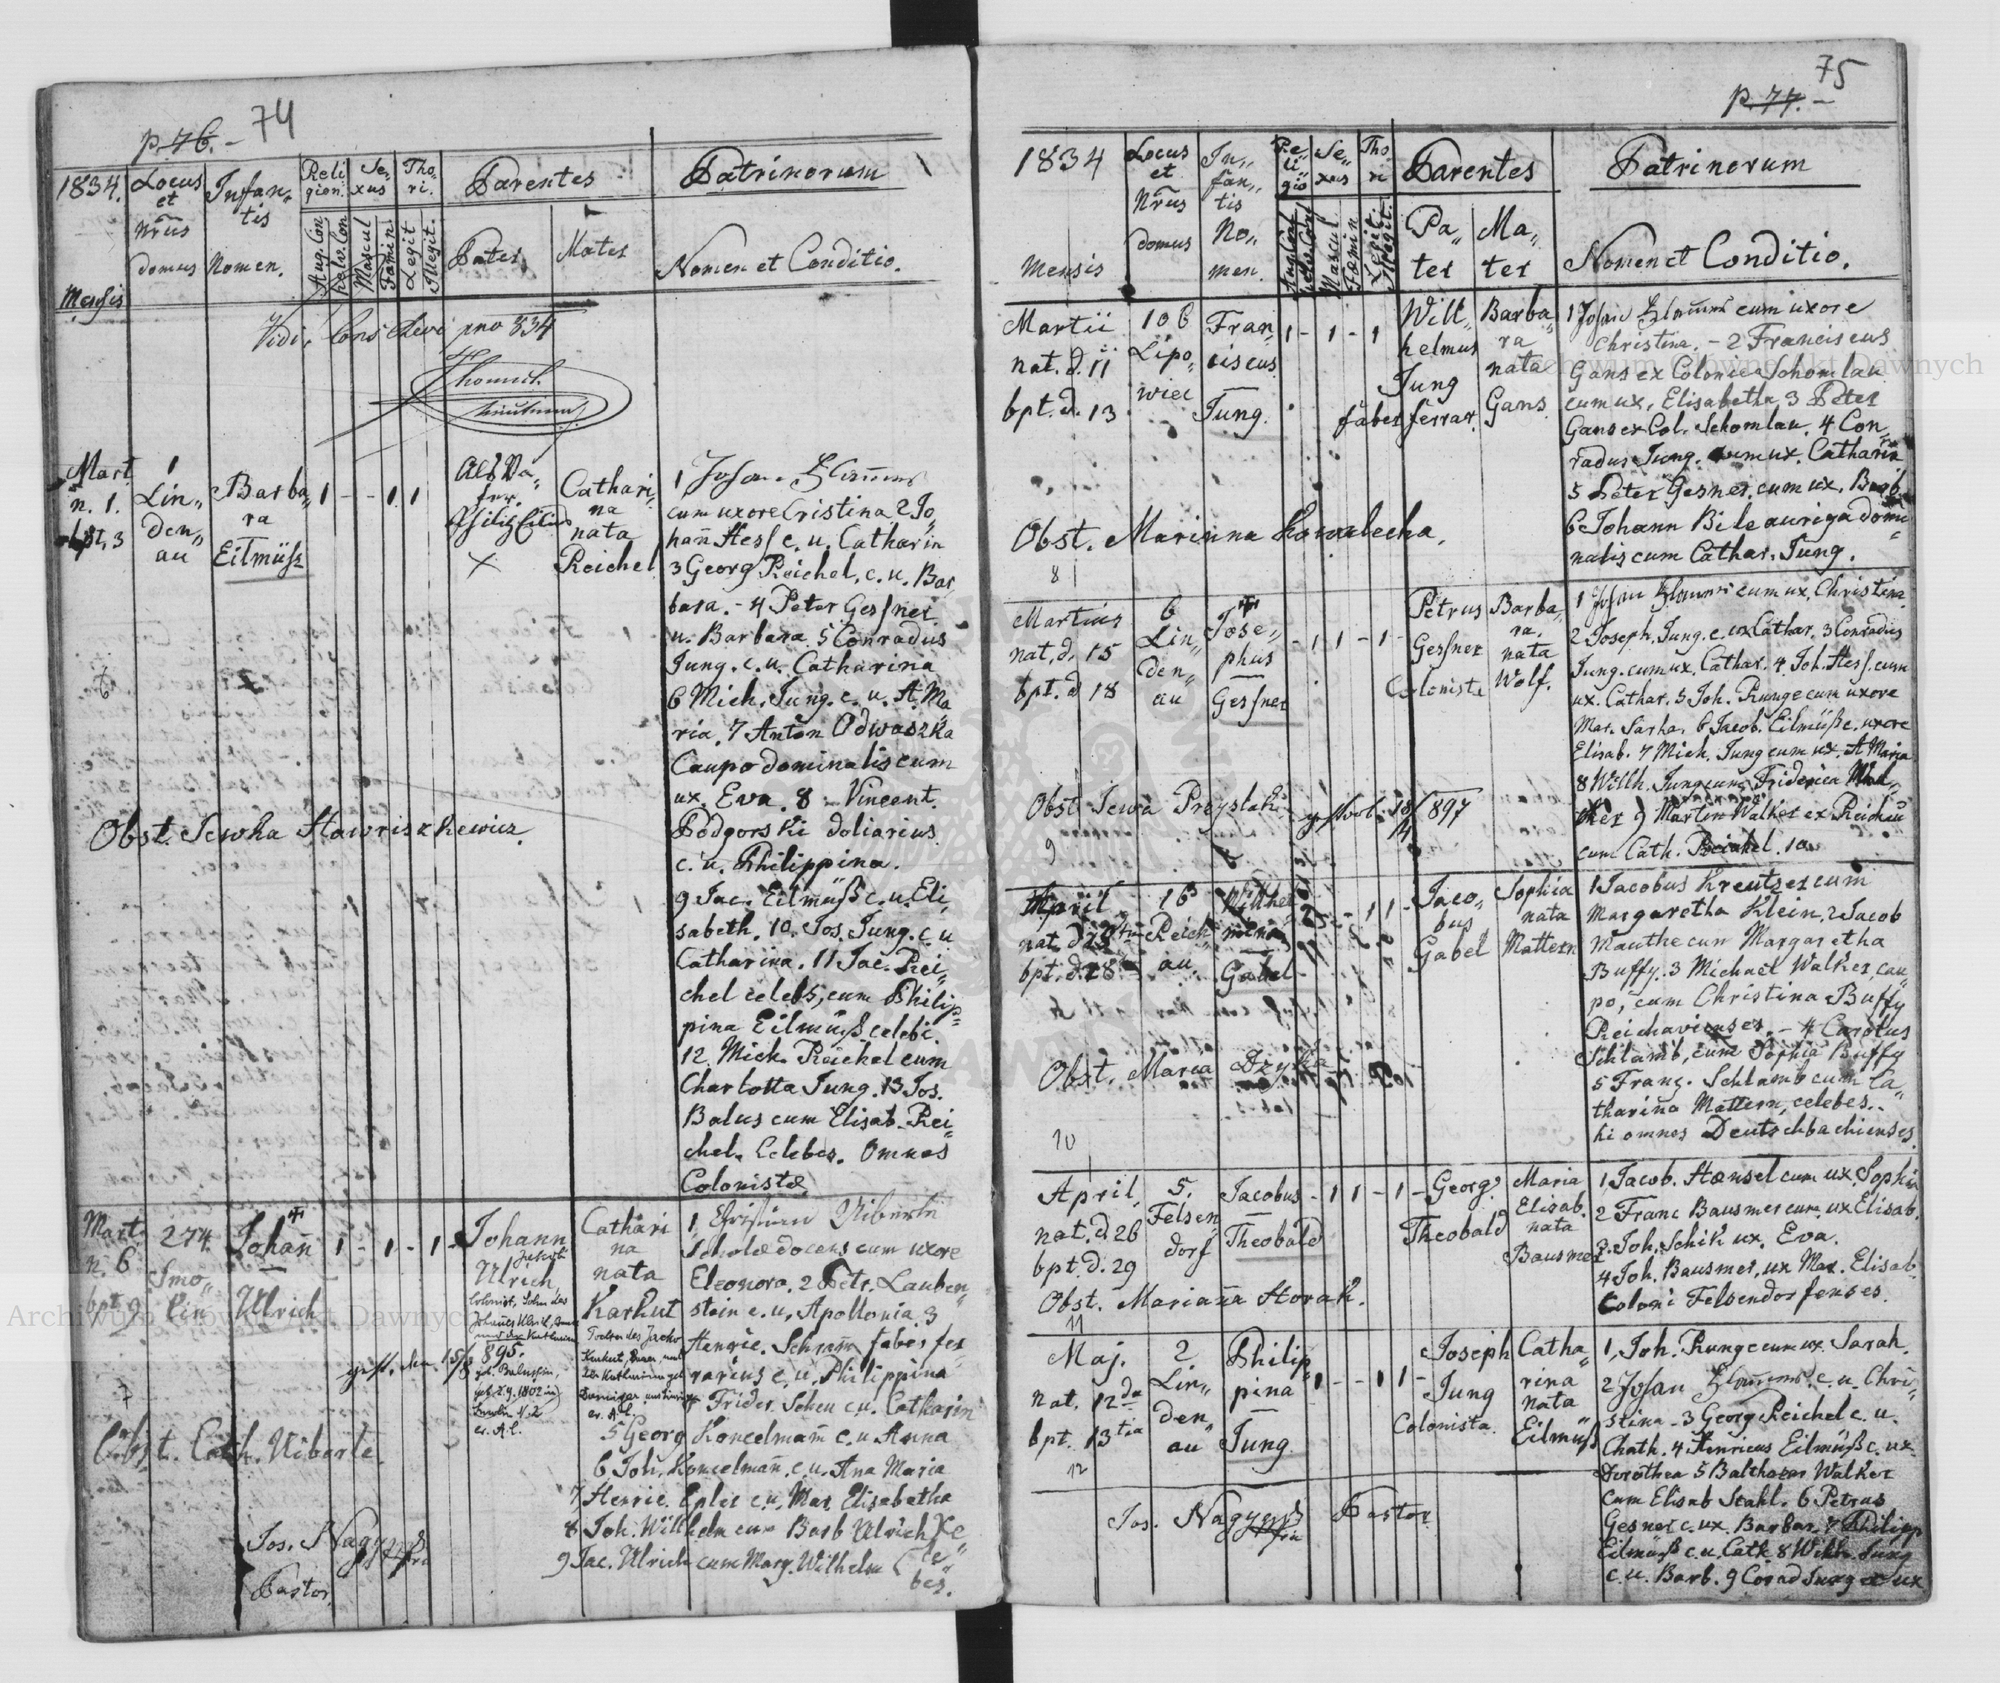 p. 76. - 74
1834. Locus et Nrūs domus
Infantis Nomen.
Religion Sexus Thori.
Aug. Con Helv. Con Mascul Fæmin. Legit Illegit.
Parentes
Pater Mater
Patrinorum
Nomen et Conditio.
Mensis
Mart
n. 1.
bpt. 3
1
Lin„
den„
au
Barba„
ra
Eilmüſs
1 - - 1 1
Cathari„
na
nata
Reichel
cum uxore Cristina 2 Jo„
hañ Heſs c. u. Catharin
3 Georg Reichel, c. u. Bar„
bara. - 4 Peter Geſsner
u. Barbara 5 Conradus
Jung. c. u. Catharina
6 Mich. Jung. c. u. A. Ma„
ria. 7 Anton Odwaszka
Caupo dominalis cum
ux. Eva. 8 Vincent.
Podgorski doliarius
c. u. Philippina.
9 Jac. Eilmüß c. u. Eli„
sabeth. 10. Jos. Jung. c. u
Catharina. 11 Jac. Rei„
chel celebs, cum Philip„
pina Eilmüß celebi.
12 Mich. Reichel cum
Charlotta Jung. 13 Jos.
Balus cum Elisab. Rei„
chel. Celebes. Omnes
Colonistæ.
6
Obst. Sewka Hawriszkewicz.
Mart.
n. 6
bpt. 9
274
Smo„
lin
Johañ
Ulrich
1 - 1 - 1 -
Johann
Jakob
Ulrich,
Cathari
na
nata
Karkut
Scholæ docens cum uxore
Eleonora. 2 Petr. Lauben„
stein c. u. Apollonia. 3
Henric. Schram faber fer„
rarius c. u. Philippina
4 Frider. Scheu c. u. Catharin
5 Georg Koncelmañ c. u. Anna
6 Joh. Koncelmañ, c. u. Ana Maria
7 Henric. Epler c. u. Mar. Elisabetha
8 Joh. Willhelm cum Barb Ulrich
9 Jac. Ulrich cum Marg. Wilhelm
Ce„
le„
bes.
7
Obst. Cath. Niberle.
Jos. Nagy
Pastor
75
p. 77. -
1834
Mensis
Locus et Nrūs domus
In„ fan„ tis No„ men.
Re„ li„ gio Se„ xus Tho„ ri
Parentes
Pa„ ter Ma„ ter
Patrinorum
Nomen et Conditio.
Martii
nat. d. 11
bpt. d. 13
106
Lipo„
wiec
Fran„
ciscus
Jung.
1 - 1 - 1
Will„
helmus
Jung
faber ferrar.
Barba„
ra
nata
Gans
cum uxore
Christina. - 2 Franciscus
Gans ex Colonia Schomlau
cum ux. Elisabetha 3 Peter
Gans ex Col. Schomlau. 4 Con„
radus Jung. cum ux. Catharin
5 Peter Gesner. cum ux. Barb
6 Johann Bile auriga domi„
nalis cum Cathar. Jung.
Obst. Marinna Kowalecha.
8
Martius
nat. d. 15
bpt. d 18
6
Lin„
den„
au
Jose„
phus
Geſsner
- 1 1 - 1 -
Petrus
Geſsner
Coloniste
Barba„
ra,
nata
Wolf.
cum ux. Christina
2 Joseph. Jung. c. ux Cathar. 3 Conradus
Jung. cum ux. Cathar. 4 Joh. Heſs. cum
ux. Cathar. 5 Joh. Runge cum uxore
Mar. Sarha. 6 Jacob. Eilmüß c. uxore
Elisab. 7 Mich. Jung cum ux. A. Maria
8 Willh. Jung cum Friderica Wal„
ker 9 Martin Walker ex Reichau
cum Cath. Reichel. 10
Obst Sewa Preyslak
897
9
April
nat. d.
bpt. d. 28
16
Reich„
au
Willhel„
mina
Gabel
Jaco„
bus
Gabel
Sophia
nata
Mattern
1 Jacobus Kreutzer cum
Margaretha Klein, 2 Jacob
Mauthe cum Margaretha
Buffy. 3 Michael Walker, cau„
po, cum Christina Buffy
Reichavienses. - 4 Carolus
Schlamb, cum Sophia Buffy
5 Franz. Schlamb cum Ca„
tharina Mattern, celebes.
hi omnes Deutschbachienses.
Obst. Maria Dzyka
10
April,
nat. d 26
bpt. d. 29
5.
Felsen
dorf
Jacobus
Theobald
- 1 1 - 1 -
Georg.
Theobald
Maria
Elisab.
nata
Bausmer
1, Jacob. Hænsel cum ux. Sophia
2 Franc Bausmer cum ux Elisab.
3. Joh. Schik ux. Eva.
4 Joh. Bausmer, ux Mar. Elisab
Coloni Felsendorfenses.
Obst. Marianna Horak.
11
Maj.
nat. 12da
bpt. 13tia
2.
Lin„
den„
au
Philip„
pina
Jung.
1 - - 1 1 -
Joseph
Jung
Colonista.
Catha„
rina
nata
Eilmüß
1, Joh. Runge cum ux. Sarah.
c. u. Chri„
stina - 3 Georg Reichel c. u.
Chath. 4 Henricus Eilmüß c. ux
Dorothea 5 Balthasar Walker
cum Elisab Stahl. 6 Petrus
Gesner c. ux. Barbar. 7 Philipp
Eilmüß c. u. Cath. 8 Wilh. Jung
c. u. Barb. 9 Conrad Jung c ux
12
Jos. Nagy Pastor
Archiwum Główne Akt Dawnych
Archiwum Główne Akt Dawnych